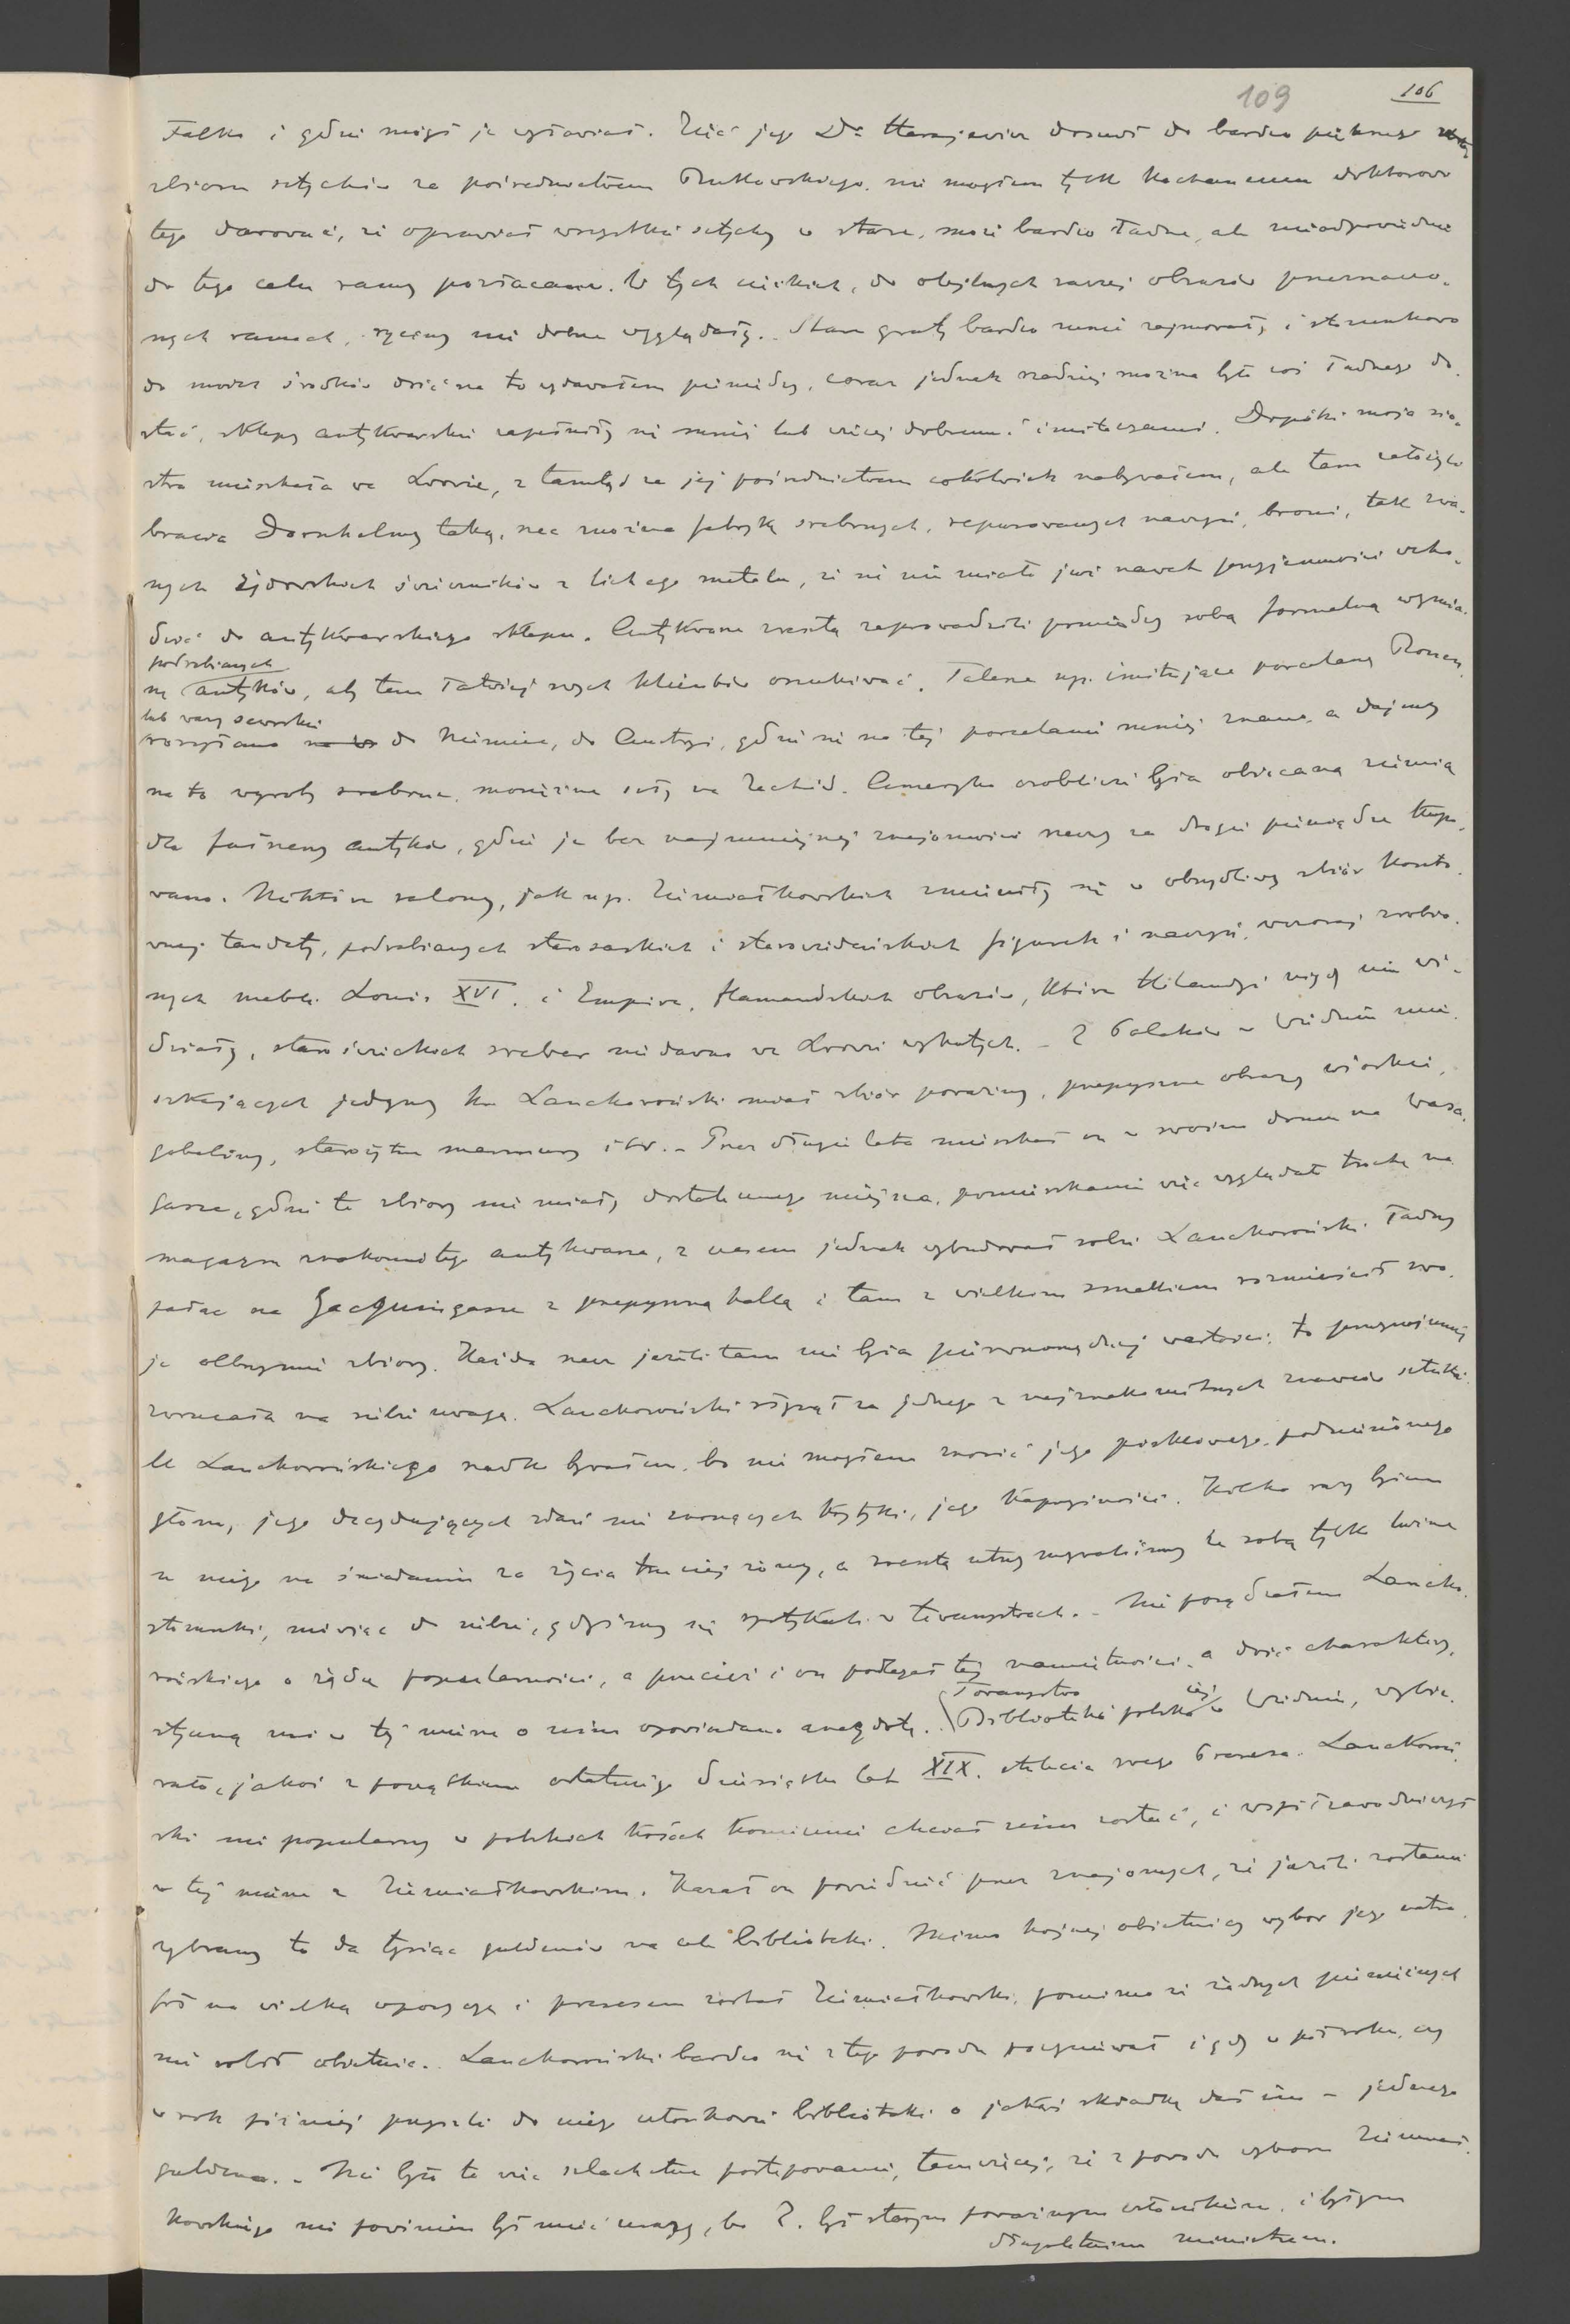 109 106
Falka i gdzie mógł je wystawiać. Zięć jego Dr Harajewicz doszedł do bardzo pięknego
zbioru sztychów za pośrednictwem Rutkowskiego, nie mogłem tylko kochanemu doktorowi
tego darować, że oprawiał wszystkie sztychy w stare, może bardzo ładne, ale nieodpowiednie
do tego celu ramy pozłacane. W tych ciężkich, do olejnych raczej obrazów przeznaczo-
nych ramach, ryciny nie dobrze wyglądały. Stare graty bardzo mnie zajmowały, i stosunkowo
do moich środków dość na to wydawałem pieniędzy, coraz jednak rzadziej można było coś ładnego do-
stać, sklepy antykwarskie zapełniły się mniej lub więcej dobremi imitacyami. Dopóki moja sio-
stra mieszkała we Lwowie, z tamtąd za jej pośrednictwem cokolwiek nabywałem, ale tam założyli
bracia Dornhelmy taką, rzec można fabrykę srebrnych, repusowanych naczyń, broni, tak zwa-
nych żydowskich świeczników z lichego metalu, że się nie miało już nawet przyjemności wcho-
dzić do antykwarskiego sklepu. Antykwarze zresztą zaprowadzili pomiędzy sobą formalną wymia-
podrabianych
nę antyków, aby tem łatwiej swych klientów oszukiwać. Talerze np. imitujące porcelanę Rouen,
lub wazy sewrskie
wożono do Niemiec, do Austryi, gdzie się na tej porcelanie mniej znano, a dajmy
na to wyroby srebrne, mosiężne szły na Zachód. Ameryka osobliwie była obiecaną ziemią
dla fałszerzy antyków, gdzie je bez najmniejszej znajomości rzeczy za drogie pieniądze kupo-
wano. Niektóre salony, jak np. Ziemiałkowskich zmieniły się w obrzydliwy zbiór koszto-
wnej tandety, podrabianych starosaskich i starowiedeńskich figurek i naczyń, wczoraj zrobio-
nych mebli Louis XVI. i Empire, flamandzkich obrazów, które Hollandyi nigdy nie wi-
działy, staroświeckich sreber niedawno we Lwowie wykutych. – Z Polaków w Wiedniu mie-
szkających jedyny hr. Lanckoroński miał zbiór poważny, przepyszne obrazy włoskie,
gobeliny, starożytne marmury itd. – Przez długie lata mieszkał on w swoim domu na Wasa-
gasse, gdzie te zbiory nie miały dostatecznego miejsca, pomieszkanie więc wyglądało trochę na
magazyn znakomitego antykwarza, z czasem jednak wybudował sobie Lanckoroński ładny
pałac na Jacquingasse z przepyszną hallą i tam z wielkim smakiem rozmieścił swo-
je olbrzymie zbiory. Każda rzecz jeżeli tam nie była pierwszorzędnej wartości, to przynajmniej
zwracała na siebie uwagę. Lanckoroński słynął za jednego z najznakomitszych znawców sztuki.
U Lanckorońskiego rzadko bywałem, bo nie mogłem znosić jego piskliwego, podniesionego
głosu, jego decydujących zdań nie znoszących krytyki, jego kapryśności. Kilka razy byłem
u niego na śniadaniu za życia trzeciej żony, a zresztą utrzymywaliśmy ze sobą tylko luźne
stosunki, mówiąc do siebie, gdyśmy się spotykali w towarzystwach. – Nie posądzałem Lancko-
rońskiego o żądzę popularności, a przecież i on podlegał tej namiętności, a dość charaktery-
styczną mi w tej mierze o nim opowiadano anegdotę. Towarzystwo Biblioteki polskiej w Wiedniu, wybie-
rało, jakoś z początkiem ostatniego dziesiątku lat XIX. stulecia swego Prezesa. Lanckoroń-
ski nie popularny w polskich kołach koniecznie chciał nim zostać, i współzawodniczył
w tej mierze z Ziemiałkowskim. Kazał on powiedzieć przez znajomych, że jeżeli zostanie
wybrany to da tysiąc guldenów na cele biblioteki. Mimo hojnej obietnicy wybór jego natra-
fił na wielką opozycyą i prezesem został Ziemiałkowski, pomimo że żadnych pieniężnych
nie robił obietnic. Lanckoroński bardzo się z tego powodu pogniewał i gdy w pół roku, czy
w rok później przyszli do niego członkowie biblioteki o jakąś składkę dał im – jednego
guldena. – Nie było to więc szlachetne postępowanie, tem więcej, że z powodu wyboru Ziemiał-
kowskiego nie powinien był mieć urazy, bo Z. był starym poważnym członkiem, i byłym
długoletnim ministrem.